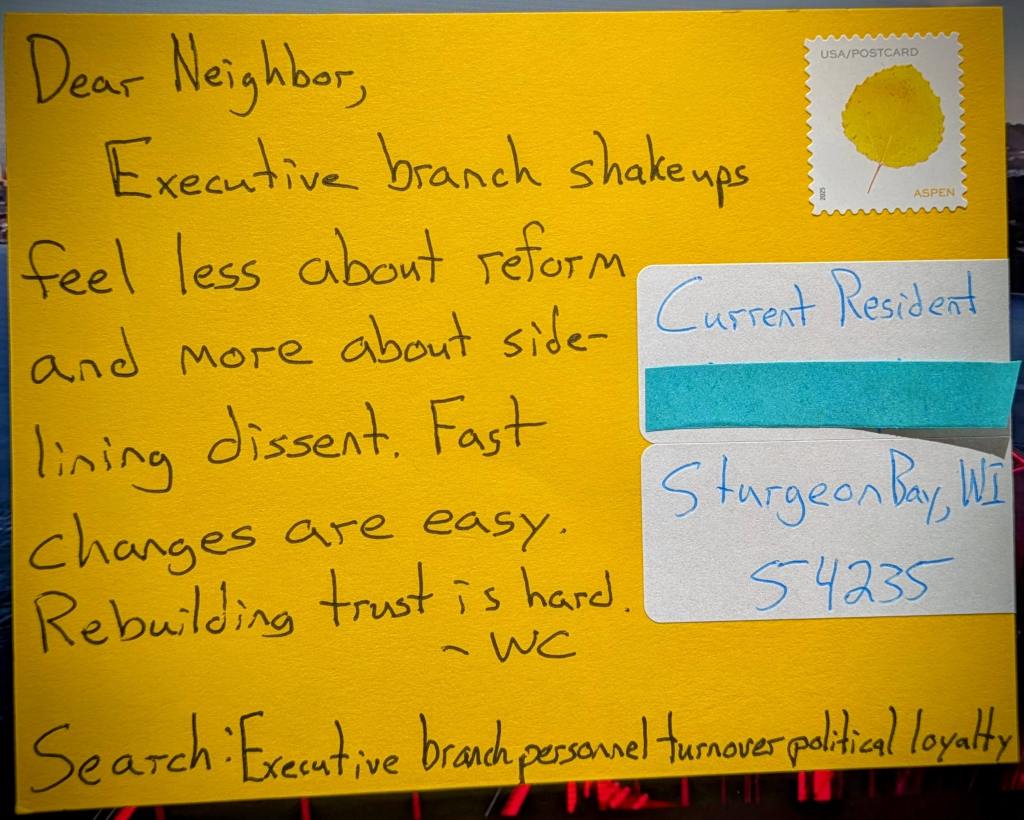 Dear Neighbor,
Executive branch shakeups
feel less about reform
and more about side-
lining dissent. Fast
changes are easy.
Rebuilding trust is hard.
~ WC
Search: Executive branch personnel turnover political loyalty
USA/POSTCARD
2025
ASPEN
Current Resident
Sturgeon Bay, WI
54235